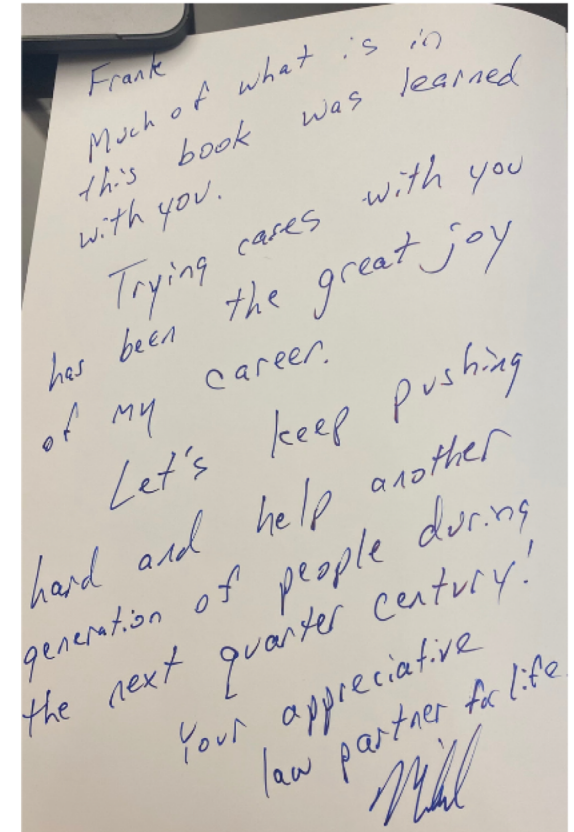 Frank
Much of what is in
this book was learned
with you.
Trying cases with you
has been the great joy
of my career.
Let's keep pushing
hard and help another
generation of people during
the next quarter century!
Your appreciative
law partner for life